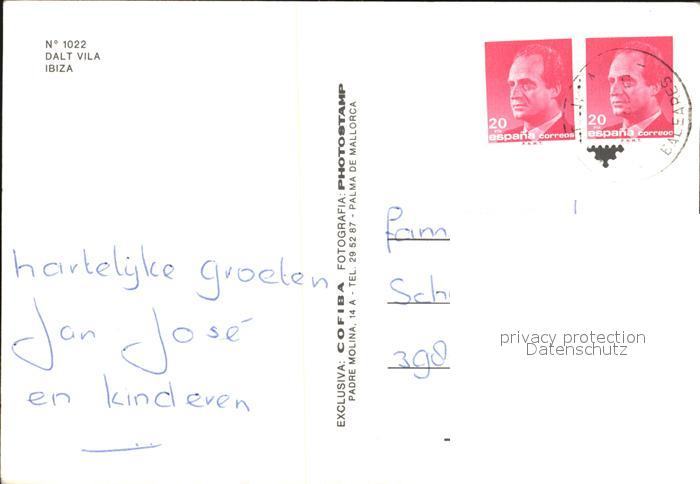 Nº 1022
DALT VILA
IBIZA
hartelijke groeten
Jan José
en kinderen
EXCLUSIVA: COFIBA FOTOGRAFIA: PHOTOSTAMP
PADRE MOLINA, 14 A - TEL. 29 52 87 - PALMA DE MALLORCA
20
PTA
españa correos
F.N.M.T.
20
PTA
españa correos
F.N.M.T.
BALEARES
fam
Sch
privacy protection
Datenschutz